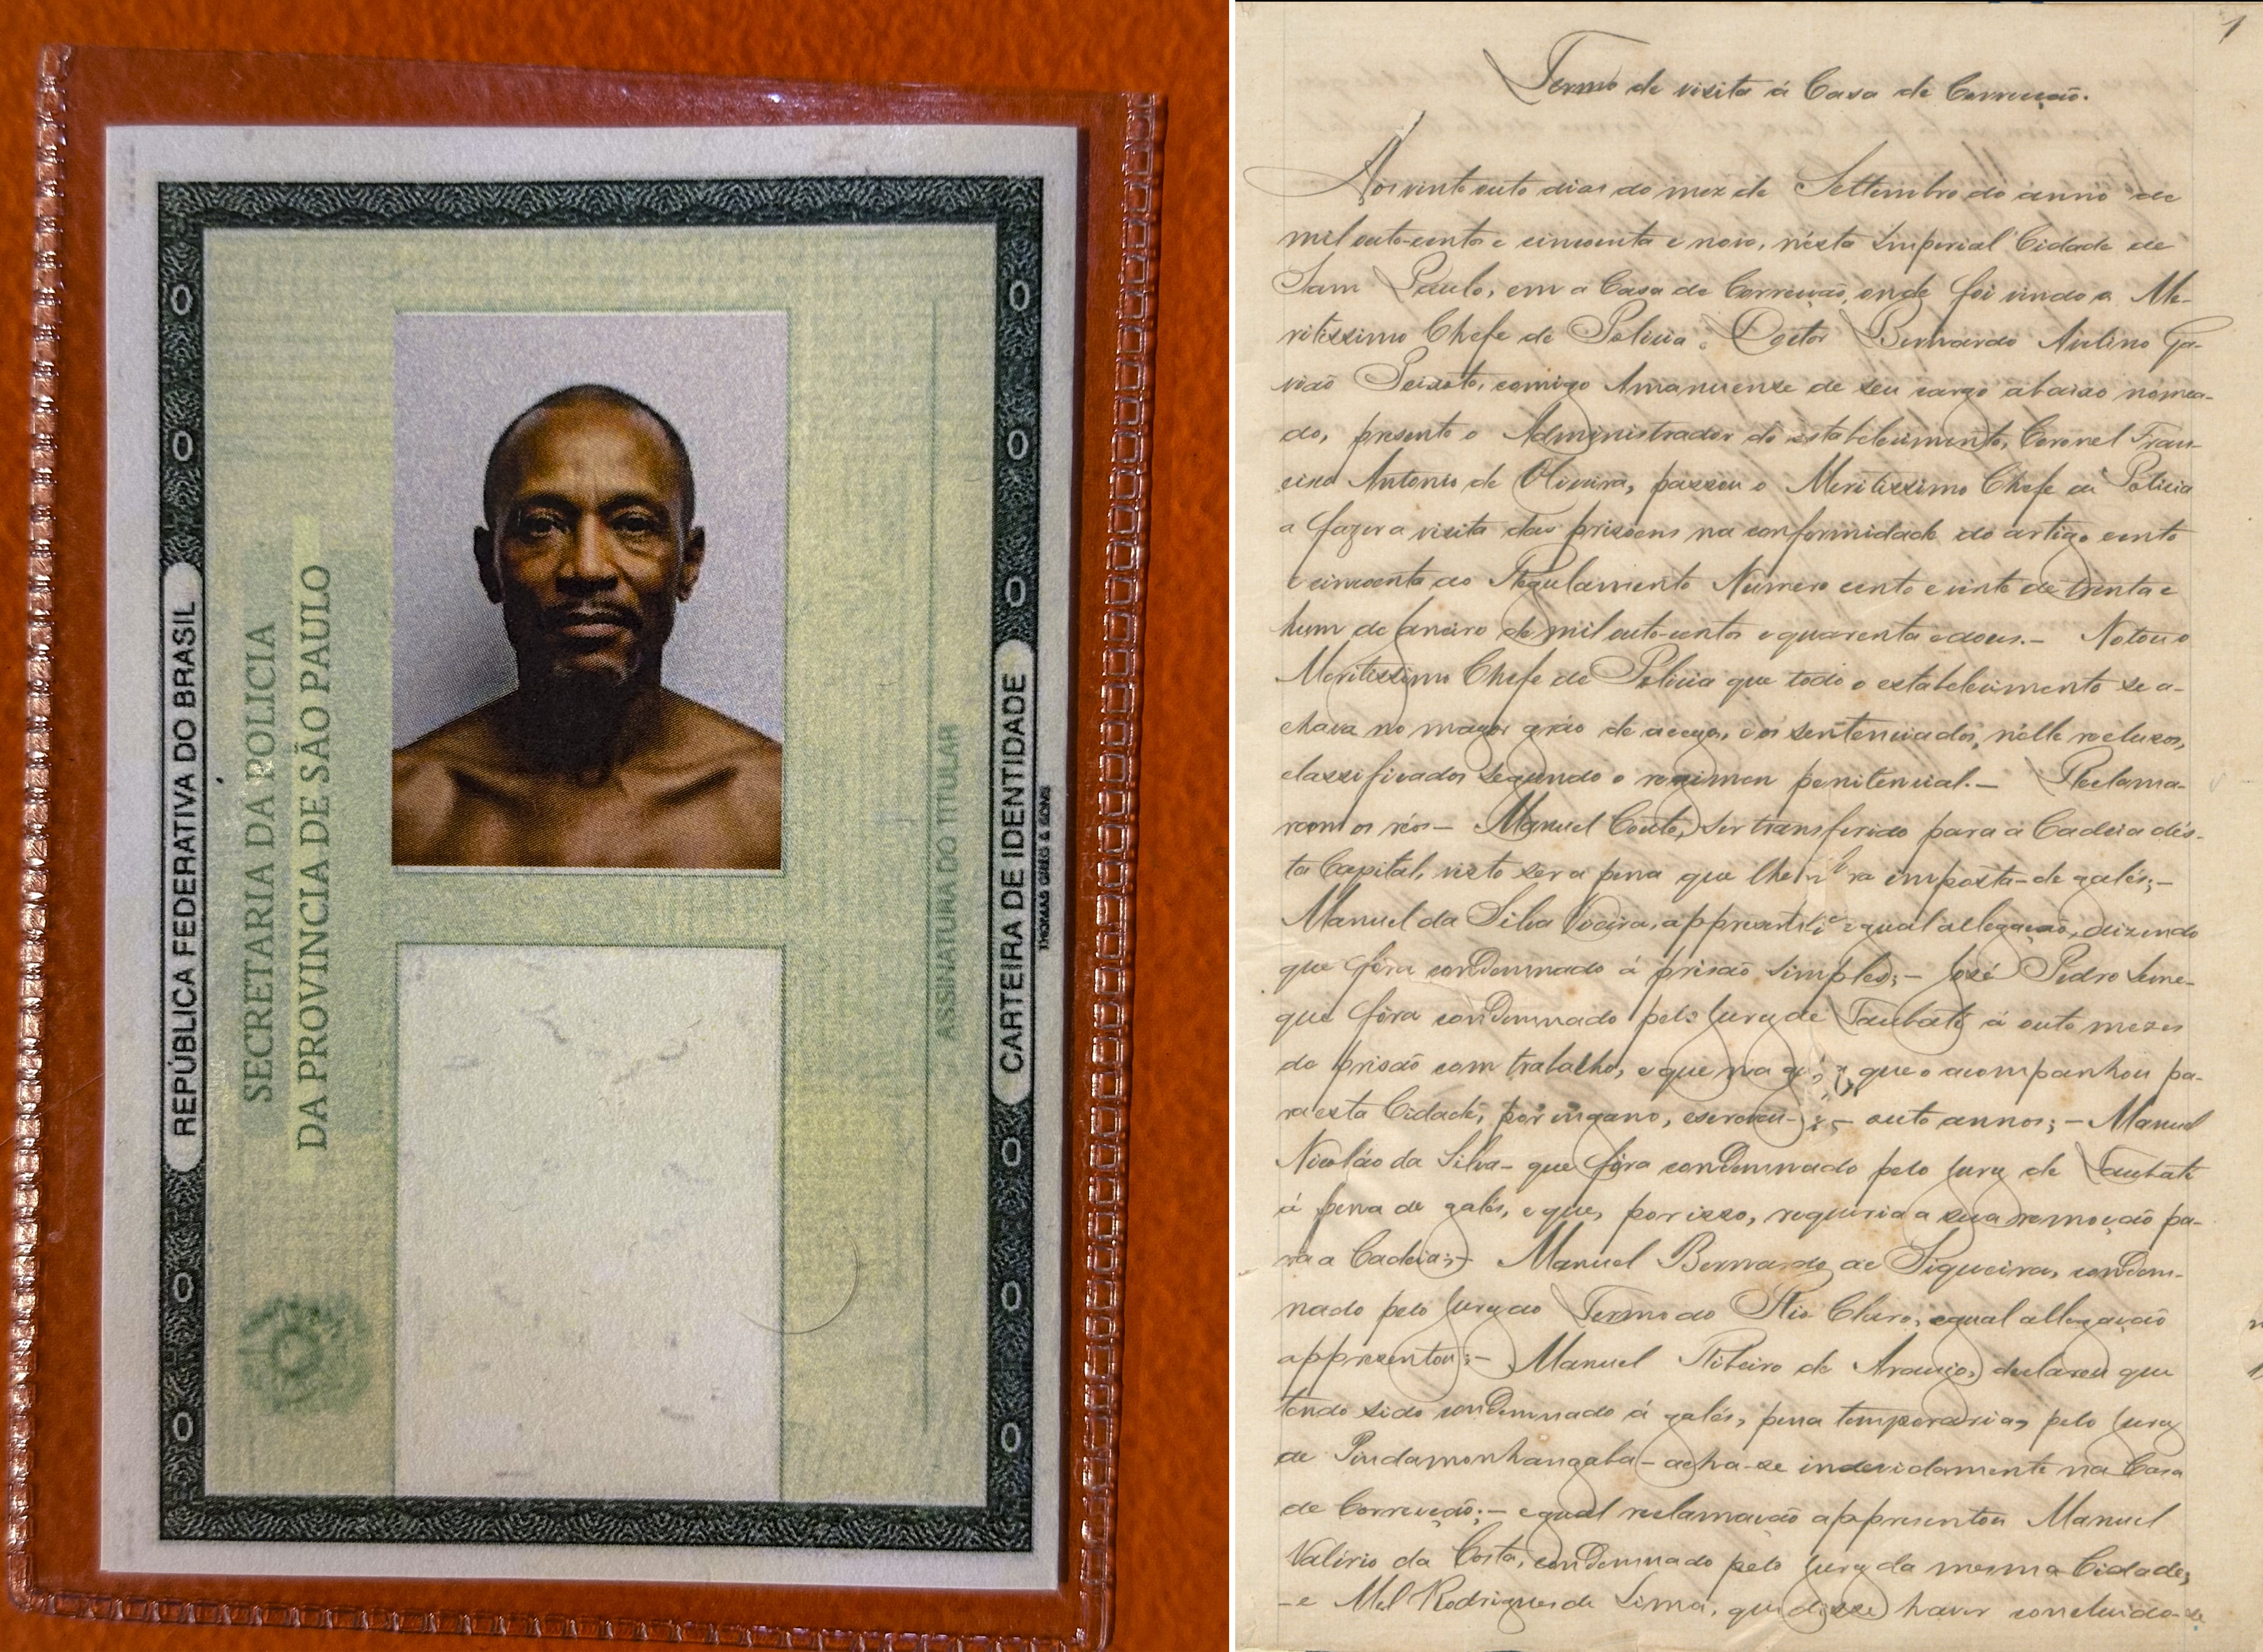 REPÚBLICA FEDERATIVA DO BRASIL
SECRETARIA DA POLICIA
DA PROVINCIA DE SÃO PAULO
ASSINATURA DO TITULAR
CARTEIRA DE IDENTIDADE
THOMAS GREG & SONS
1
Termo de visita á Casa de Correcção.
Aos vinte outo dias do mez de Settembro do anno de
mil outo-centos e cincoenta e nove, nésta Imperial Cidade de
Sam Paulo, em a Casa de Correcção, onde foi vindo o Me-
ritissimo Chefe de Policia, Doctor Bernardo Avelino Ga-
vião Peixoto, comigo Amanuense de seu cargo abaixo nomea-
do, presente o Administrador do estabelecimento, Coronel Fran-
cisco Antonio de Oliveira, passou o Meritissimo Chefe de Policia
a fazer a visita das prisoens na conformidade do artigo cento
e cincoenta do Regulamento Numero cento e vinte de trinta e
hum de Janeiro de mil outo-centos e quarenta e dous.- Notou o
Meritissimo Chefe de Policia que todo o estabelecimento se a-
chava no maior gráo de aceyo, e os sentenciados, nélle reclusos,
classificados segundo o regimen penitencial.- Reclama-
ram os réos- Manuel Couto, ser transferido para a Cadeia dés-
ta Capital, visto ser a pena que lhe fôra imposta-de galés;-
Manuel da Silva Vieira, appresentou egual allegação, dizendo
que fôra condemnado á prisão simples;- José Pedro Leme-
que fôra condemnado pelo Jury de Taubaté á outo mezes
de prisão com trabalho, e que na guia, que o acompanhou pa-
ra esta Cidade, por engano, escreveu-se- outo annos;- Manuel
Nicoláo da Silva- que fôra condemnado pelo Jury de Taubaté
á pena de galés, e que, por isso, requeria a sua remoção pa-
ra a Cadeia;- Manuel Bernardo de Siqueira, condem-
nado pelo Jury do Termo do Rio Claro, egual allegação
appresentou;- Manuel Ribeiro de Araujo, declarou que
tendo sido condemnado á galés, pena temporaria, pelo Jury
de Pindamonhangaba- acha-se indevidamente na Casa
de Correcção;- egual reclamação appresentou Manuel
Valério da Costa, condemnado pelo Jury da mesma Cidade;
-e Mel Rodrigues de Lima, que disse haver concluido-se